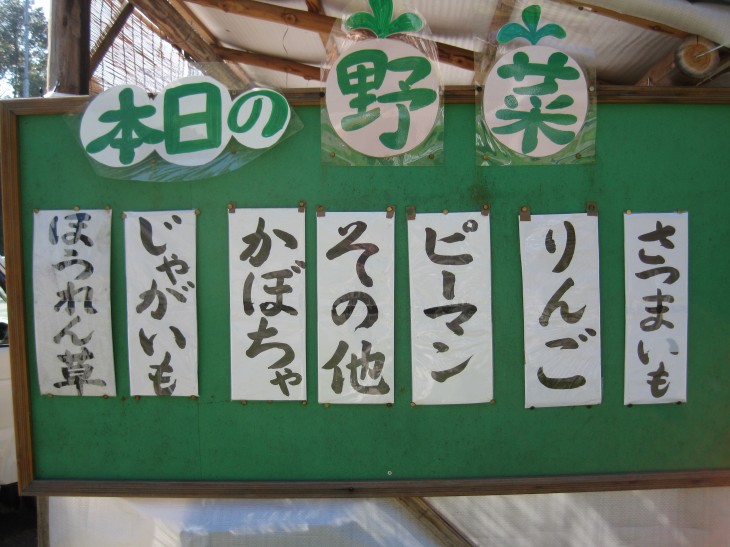 本日の野菜
さつまいも
りんご
ピーマン
その他
かぼちゃ
じゃがいも
ほうれん草